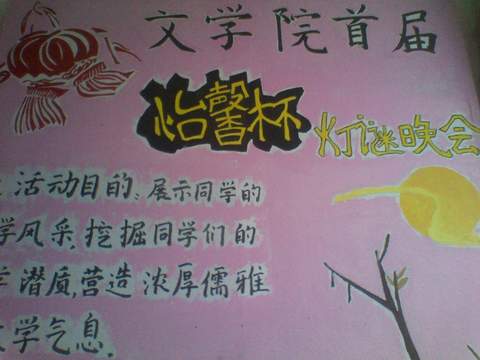 文学院首届
怡馨杯 灯谜晚会
活动目的:展示同学的
学风采,挖掘同学们的
学潜质,营造浓厚儒雅
文学气息.